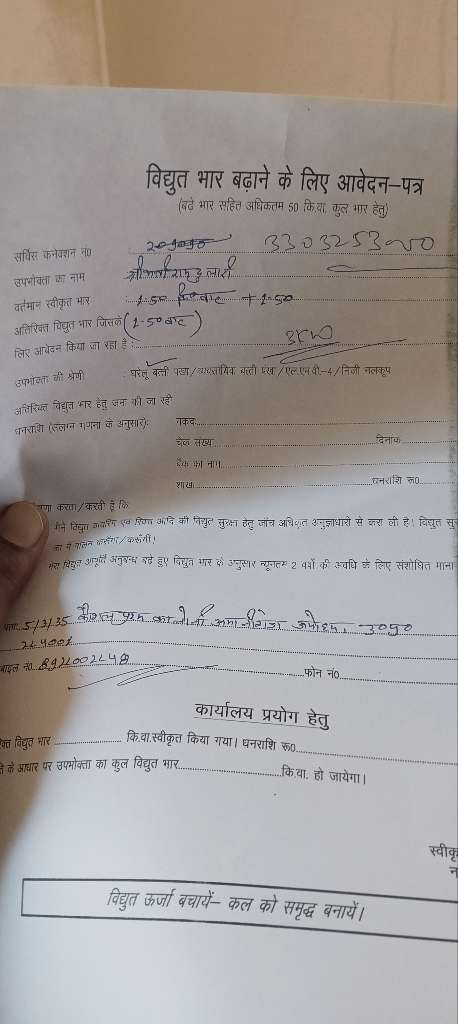 विद्युत भार बढ़ाने के लिए आवेदन–पत्र
(बढ़े भार सहित अधिकतम 50 कि.वा. कुल भार हेतु)
सर्विस कनेक्शन नं० 3303253200
उपभोक्ता का नाम श्रीमती राम दुलारी
वर्तमान स्वीकृत भार 1.50 किलोवाट + 1.50
अतिरिक्त विद्युत भार जिसके (1.50 वाट)
लिए आवेदन किया जा रहा है : 3KW
उपभोक्ता की श्रेणी : घरेलू बत्ती पंखा/व्यवसायिक बत्ती पंखा/एल.एम.वी–4/निजी नलकूप
अतिरिक्त विद्युत भार हेतु जमा की जा रही
धनराशि (संलग्न गणना के अनुसार): नकद
चैक संख्या दिनांक
बैंक का नाम
शाखा धनराशि रू०
करता/करती हूँ कि
मैंने विद्युत वायरिंग एवं फिटिंग आदि की विद्युत सुरक्षा हेतु जाँच अधिकृत अनुज्ञाधारी से करा ली है। विद्युत सु
का मैं पालन करूँगा/करूँगी।
मेरा विद्युत आपूर्ति अनुबन्ध बढ़े हुए विद्युत भार के अनुसार न्यूनतम 2 वर्षों की अवधि के लिए संशोधित माना
पता 5/3/35 कौशल पुरम कालोनी अमानीगंज अयोध्या, उ०प्र०
224001
बाइल नं० 8921002248 फोन नं०
कार्यालय प्रयोग हेतु
क्त विद्युत भार कि.वा.स्वीकृत किया गया। धनराशि रू०
के आधार पर उपभोक्ता का कुल विद्युत भार कि.वा. हो जायेगा।
स्वीकृ
विद्युत ऊर्जा बचायें– कल को समृद्ध बनायें।